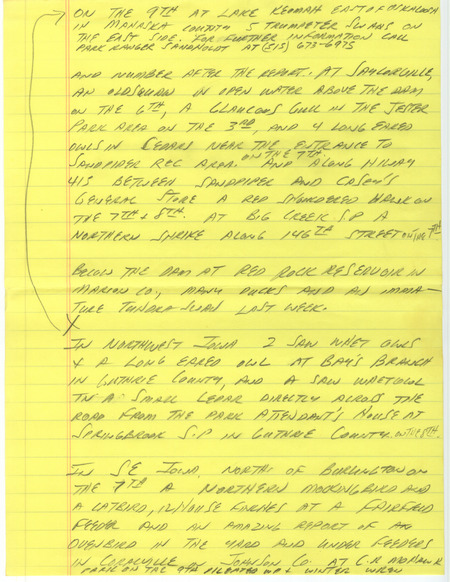 ON THE 9TH AT LAKE KEOMAH EAST OF OSKALOOSA
IN MAHASKA COUNTY 5 TRUMPETER SWANS ON
THE EAST SIDE. FOR FURTHER INFORMATION CALL
PARK RANGER SANDHOLDT AT (515) 673-6975
AND NUMBER AFTER THE REPORT. AT SAYLORVILLE,
AN OLDSQUAW IN OPEN WATER ABOVE THE DAM
ON THE 6TH, A GLAUCOUS GULL IN THE JESTER
PARK AREA ON THE 3RD, AND 4 LONG EARED
OWLS IN CEDARS NEAR THE ENTRANCE TO
SANDPIPER REC AREA ON THE 7TH. AND ALONG HIWAY
415 BETWEEN SANDPIPER AND CASEY'S
GENERAL STORE A RED SHOULDERED HAWK ON
THE 7TH & 8TH. AT BIG CREEK S.P A
NORTHERN SHRIKE ALONG 146TH STREET ON THE 7TH
BELOW THE DAM AT RED ROCK RESERVOIR IN
MARION CO., MANY DUCKS AND AN IMMA-
TURE TUNDRA SWAN LAST WEEK.
X
IN NORTHWEST IOWA 2 SAW WHET OWLS
& A LONG EARED OWL AT BAY'S BRANCH
IN GUTHRIE COUNTY, AND A SAW WHET OWL
IN A SMALL CEDAR DIRECTLY ACROSS THE
ROAD FROM THE PARK ATTENDANT'S HOUSE AT
SPRINGBROOK S.P IN GUTHRIE COUNTY. ON THE 8TH.
IN S E IOWA, NORTH OF BURLINGTON ON
THE 7TH A NORTHERN MOCKINGBIRD AND
A CATBIRD, 12 HOUSE FINCHES AT A FAIRFIELD
FEEDER AND AN AMAZING REPORT OF AN
OVENBIRD IN THE YARD AND UNDER FEEDERS
IN CORALVILLE IN JOHNSON CO. AT C.R MOHAWK
PARK ON THE 9TH PILEATED WP & WINTER WREN